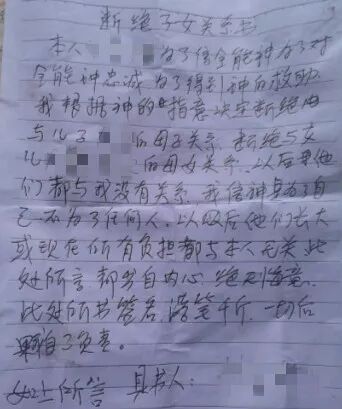 断绝子女关系书
本人 为了信全能神为了对
全能神忠诚为了得到神的救助
我根据神的旨意决定断绝由
与儿子 的母子关系.断绝与女
儿 的母女关系.以后里他
们都与我没有关系.我信神是为了自
己.不为了任何人.以后他们长大
或现在所有负担都与本人无关.此
处所言都出自内心.绝不悔意.
此处所书签名.落笔千斤.一切后
果自己负责。
以上所言 具书人: